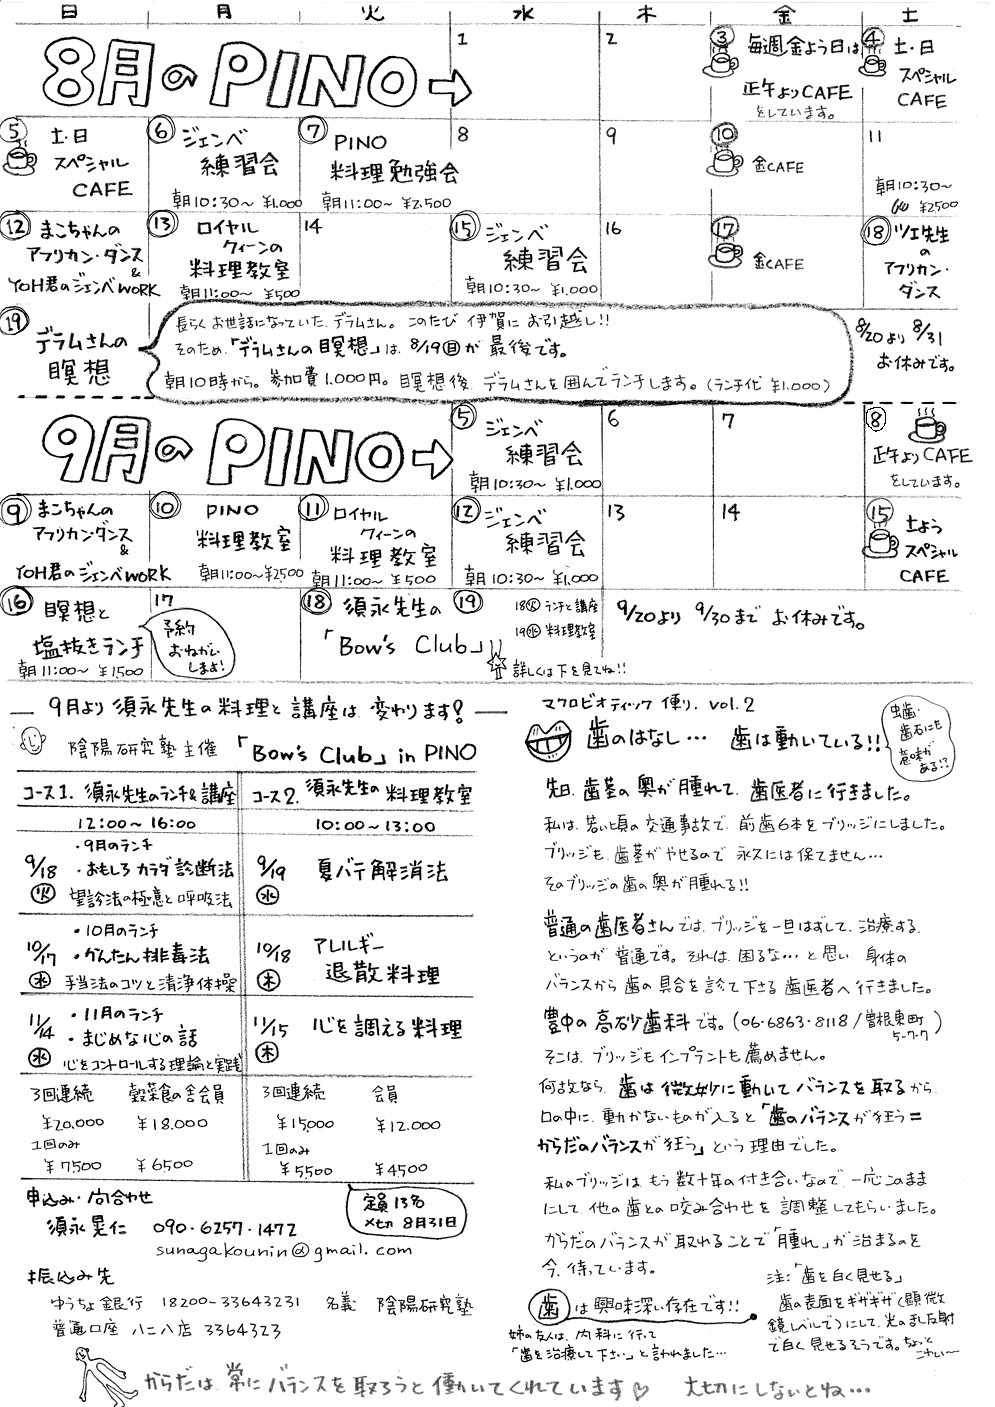 日 月 火 水 木 金 土
8月のPINO→
1
2
③ 毎週金よう日は
正午よりCAFE
をしています。
④ 土・日
スペシャル
CAFE
⑤ 土・日
スペシャル
CAFE
⑥ ジェンベ
練習会
朝10:30〜 ¥1.000
⑦ PINO
料理勉強会
朝11:00〜 ¥2.500
8
9
⑩ 金CAFE
11
朝10:30〜
¥2500
⑫ まこちゃんの
アフリカン・ダンス
&
YOH君のジェンベWORK
⑬ ロイヤル
クィーンの
料理教室
朝11:00〜 ¥500
14
⑮ ジェンベ
練習会
朝10:30〜 ¥1,000
16
⑰ 金CAFE
⑱ ツエ先生
の
アフリカン・
ダンス
⑲ デラムさんの
瞑想
長らくお世話になっていた、デラムさん。このたび 伊賀に お引越し!!
そのため、「デラムさんの瞑想」は、8/19㊐が 最後です。
朝10時から。参加費1.000円。瞑想後、デラムさんを囲んでランチします。(ランチ代 ¥1.000)
8/20より 8/31
お休みです。
9月のPINO→
⑤ ジェンベ
練習会
朝10:30〜 ¥1.000
6
7
⑧ 正午よりCAFE
をしています。
⑨ まこちゃんの
アフリカンダンス
&
YOH君のジェンベWORK
⑩ PINO
料理教室
朝11:00〜¥2500
⑪ ロイヤル
クィーンの
料理教室
朝11:00〜 ¥500
⑫ ジェンベ
練習会
朝10:30〜 ¥1.000
13
14
⑮ 土よう
スペシャル
CAFE
⑯ 瞑想と
塩抜きランチ
朝11:00〜 ¥1500
17
予約
おねがい
します!
⑱ 須永先生の
「Bow's Club」!!
⑲ 18㊋ ランチと講座
19㊌ 料理教室
☆詳しくは下を見てね!!
9/20より 9/30まで お休みです。
— 9月より 須永先生の料理と講座は 変わります! —
陰陽研究塾主催 「Bow's Club」in PINO
コース1. 須永先生のランチ&講座
12:00〜16:00
9/18 ㊋ ・9月のランチ
・おもしろ カラダ診断法
望診法の極意と呼吸法
10/17 ㊌ ・10月のランチ
・かんたん排毒法
手当法のコツと清浄体操
11/14 ㊌ ・11月のランチ
・まじめな心の話
心をコントロールする理論と実践
3回連続 穀菜食の舎会員
¥20.000 ¥18.000
1回のみ
¥7500 ¥6500
コース2. 須永先生の料理教室
10:00〜13:00
9/19 ㊌ 夏バテ解消法
10/18 ㊍ アレルギー
退散料理
11/15 ㊍ 心を調える料理
3回連続 会員
¥15000 ¥12.000
1回のみ
¥5500 ¥4500
申込み・問合わせ
須永晃仁 090・6257・1472
sunagakounin@gmail.com
定員13名
〆切 8月31日
振込み先
ゆうちょ銀行 18200-33643231 名義 陰陽研究塾
普通口座 八二八店 3364323
マクロビオティック便り. vol.2
歯のはなし… 歯は動いている!!
虫歯・
歯石にも
意味が
ある!?
先日、歯茎の奥が腫れて、歯医者に行きました。
私は、若い頃の交通事故で、前歯6本をブリッジにしました。
ブリッジも、歯茎がやせるので 永久には保てません…
そのブリッジの歯の奥が腫れる!!
普通の歯医者さんでは、ブリッジを一旦はずして、治療する、
というのが 普通です。それは、困るな…と思い 身体の
バランスから歯の具合を診て下さる歯医者へ行きました。
豊中の高砂歯科です。(06・6863・8118/曽根東町
5-7-7)
そこは、ブリッジもインプラントも薦めません。
何故なら、歯は微妙に動いてバランスを取るから、
口の中に、動かないものが入ると「歯のバランスが狂う=
からだのバランスが狂う」という理由でした。
私のブリッジは もう数十年の付き合いなので、一応このまま
にして、他の歯との咬み合わせを調整してもらいました。
からだのバランスが取れることで「腫れ」が治まるのを
今、待っています。
歯は興味深い存在です!!
姉の友人は、内科に行って
「歯を治療して下さい」と言われました…
注:「歯を白く見せる」
歯の表面をギザギザ(顕微
鏡レベルで)にして、光のまし反射
で白く見せるそうです。ちょっと
こわい〜
からだは 常に バランスを取ろうと働いてくれています♡ 大切にしないとね…